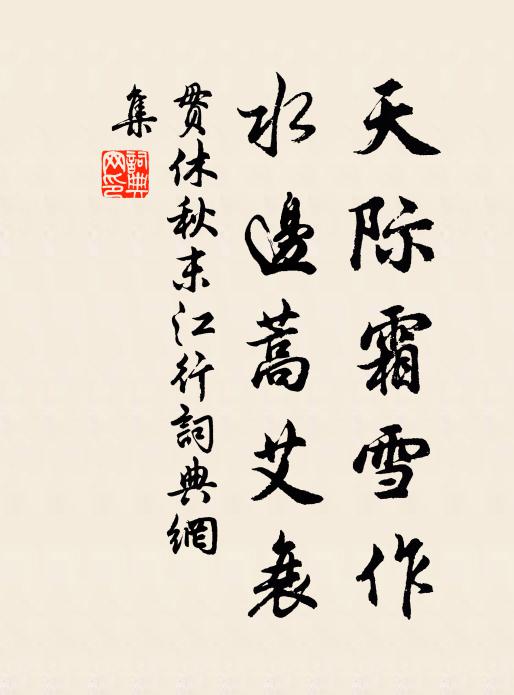 天际霜雪作
水邊蒿艾衰
贯休秋末江行詞典網
集
詞典
网印